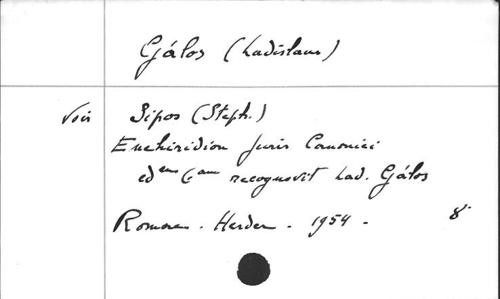 Gálos (Ladislaus)
Voir Sipos (Steph.)
Enchiridion Juris Canonici
ed em 6 am recognovit Lad. Gálos
Romae. Herder. 1954. 8°